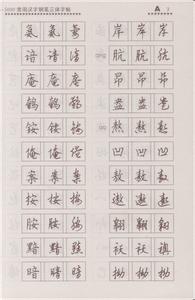 5000常用汉字钢笔三体字帖 A 3
氨 氨 氨 岸 岸 岸
谙 谙 谙 肮 肮 肮
庵 庵 庵 昂 昂 昂
鹌 鹌 鹌 盎 盎 盎
铵 铵 铵 熬 熬 熬
俺 俺 俺 凹 凹 凹
案 案 案 敖 敖 敖
桉 桉 桉 遨 遨 遨
胺 胺 胺 翱 翱 翱
黯 黯 黯 袄 袄 袄
暗 暗 暗 拗 拗 拗